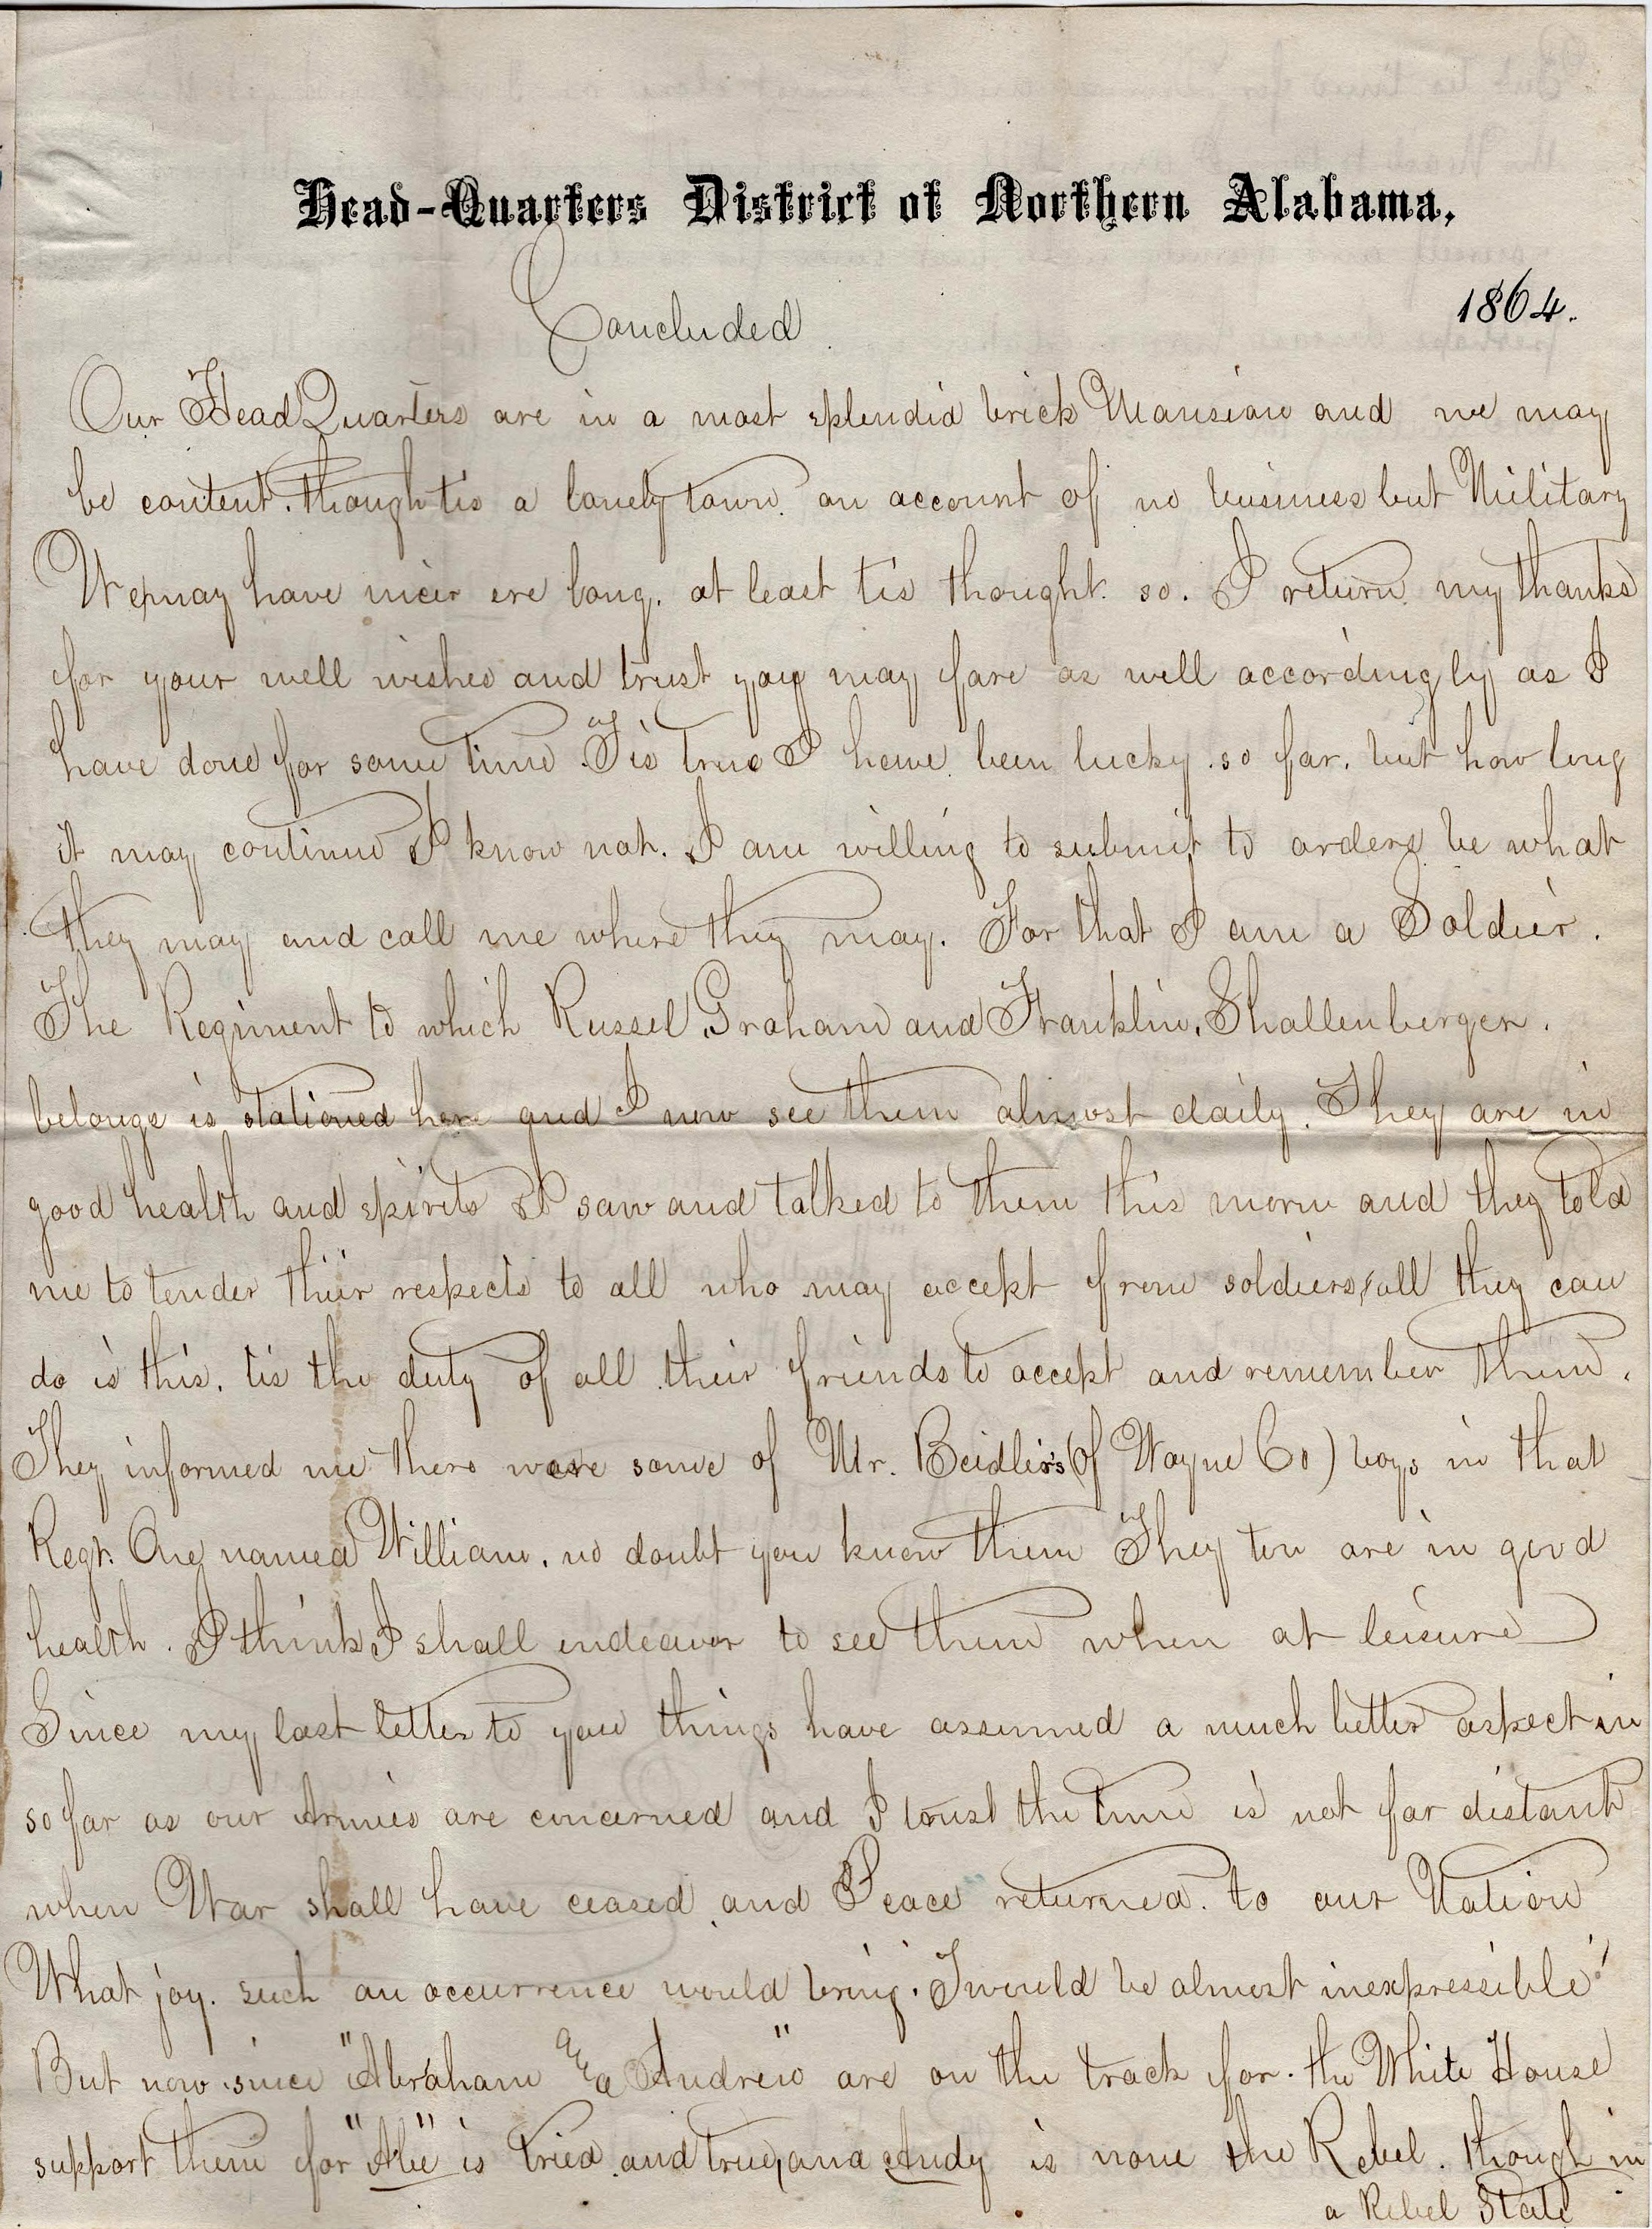 Head-Quarters District of Northern Alabama,
Concluded
1864.
Our HeadQuarters are in a most splendid brick Mansion and we may
be content. though tis a lonely town. on account of no business but Military
We may have nicer ere long. at least tis thought so. I return my thanks
for your well wishes and trust you may fare as well accordingly as I
have done for some time. Tis true I have been lucky so far. but how long
it may continue I know not. I am willing to submit to orders be what
they may and call me where they may. For that I am a Soldier.
The Regiment to which Russel Graham and Franklin Shallenberger.
belongs is stationed here and I now see them almost daily. They are in
good health and spirits I saw and talked to them this morn and they told
me to tender their respects to all who may accept from soldiers, all they can
do is this. tis the duty of all their friends to accept and remember them.
They informed me there were some of Mr. Beidler's (of Wayne Co) boys in that
Regt. One named William. no doubt you know them They too are in good
health. I think I shall endeavor to see them when at leisure
Since my last letter to you things have assumed a much better aspect in
so far as our Armies are concerned and I trust the time is not far distant
when War shall have ceased and Peace returned. to our Nation
What joy. such an occurrence would bring. T would be almost inexpressible!
But now since "Abraham and Andrew" are on the track for the White House
support them for "Abe" is tried and true, and Andy is none the Rebel. though in
a Rebel State